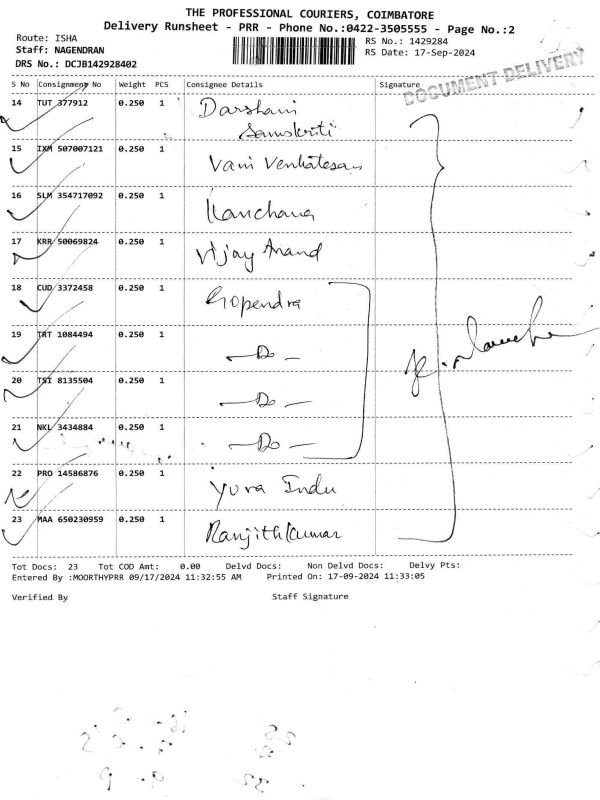 THE PROFESSIONAL COURIERS, COIMBATORE
Delivery Runsheet - PRR - Phone No.:0422-3505555 - Page No.:2
Route: ISHA
RS No.: 1429284
Staff: NAGENDRAN
RS Date: 17-Sep-2024
DRS No.: DCJB142928402
DOCUMENT DELIVERY
S No Consignment No Weight PCS Consignee Details Signature
14 TUT 377912 0.250 1 Darshani
Samskriti
15 IXM 507007121 0.250 1 Vani Venkatesan
16 SLM 354717092 0.250 1 Kanchana
17 KRR 50069824 0.250 1 Vijay Anand
18 CUD 3372458 0.250 1 Gopendra
19 TRT 1084494 0.250 1 - Do -
20 TSI 8135504 0.250 1 - Do -
21 NKL 3434884 0.250 1 - Do -
22 PRO 14586876 0.250 1 Yuva Indu
23 MAA 650230959 0.250 1 Ranjithkumar
Tot Docs: 23 Tot COD Amt: 0.00 Delvd Docs: Non Delvd Docs: Delvy Pts:
Entered By :MOORTHYPRR 09/17/2024 11:32:55 AM Printed On: 17-09-2024 11:33:05
Verified By Staff Signature